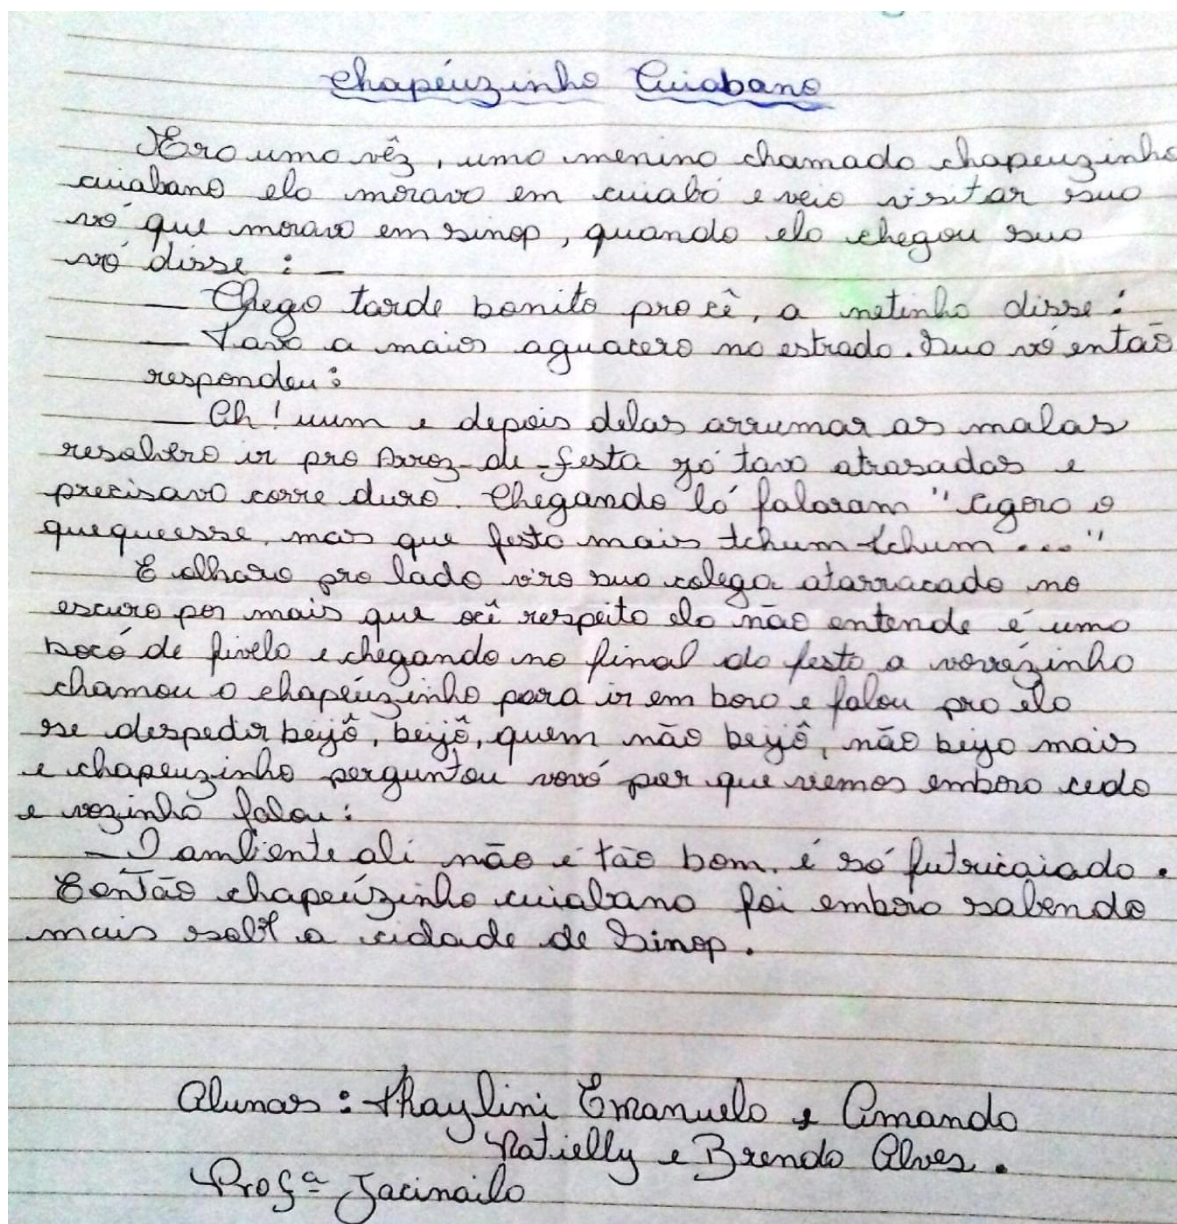 Chapéuzinho Cuiabano
Era uma vêz, uma menina chamada chapeuzinho
cuiabano ela morava em cuiabá e veio visitar sua
vó que morava em sinop, quando ela chegou sua
vó disse : –
— Chego tarde bonito pro cê, a netinha disse :
— Tava a maior aguacero na estrada. Sua vó então
respondeu :
— Ah ! uum e depois delas arrumar as malas
resolvero ir pro Arroz-de-festa já tava atrasadas e
precisava corre duro. Chegando lá falaram " agora o
quequeesse, mas que festa mais tchum tchum ... "
E olharo pro lado viro sua colega atarracada no
escuro por mais que ocê respeita ela não entende é uma
bocó de fivela e chegando no final da festa a vovozinha
chamou a chapéuzinho para ir em bora e falou pra ela
se despedir beijô, beijô, quem não beijô, não beija mais
e chapeuzinho perguntou vovó por que viemos embora cedo
e vozinha falou :
– O ambiente ali não é tão bom, é só futricaiada .
Eentão chapeúzinho cuiabano foi embora sabendo
mais sobre a cidade de Sinop.
Alunas : Thaylini Emanuela e Amanda
Natielly e Brenda Alves .
Profª Jacinaila